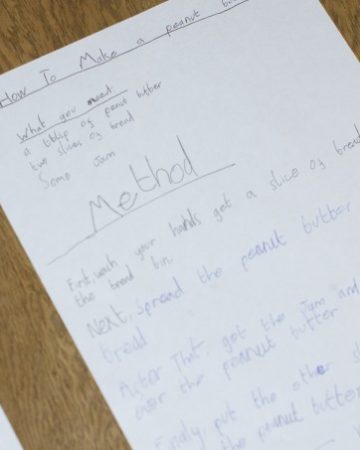 How To Make a peanut
What you need
a tblsp of penut butter
two slices of bread
Some Jam
Method
First, wash your hands get a slice of bread
the bread bin.
Next, spread the peanut butter
bread
After That, get the Jam and
over the peanut butter
Finaly, put the other
the peanut butter